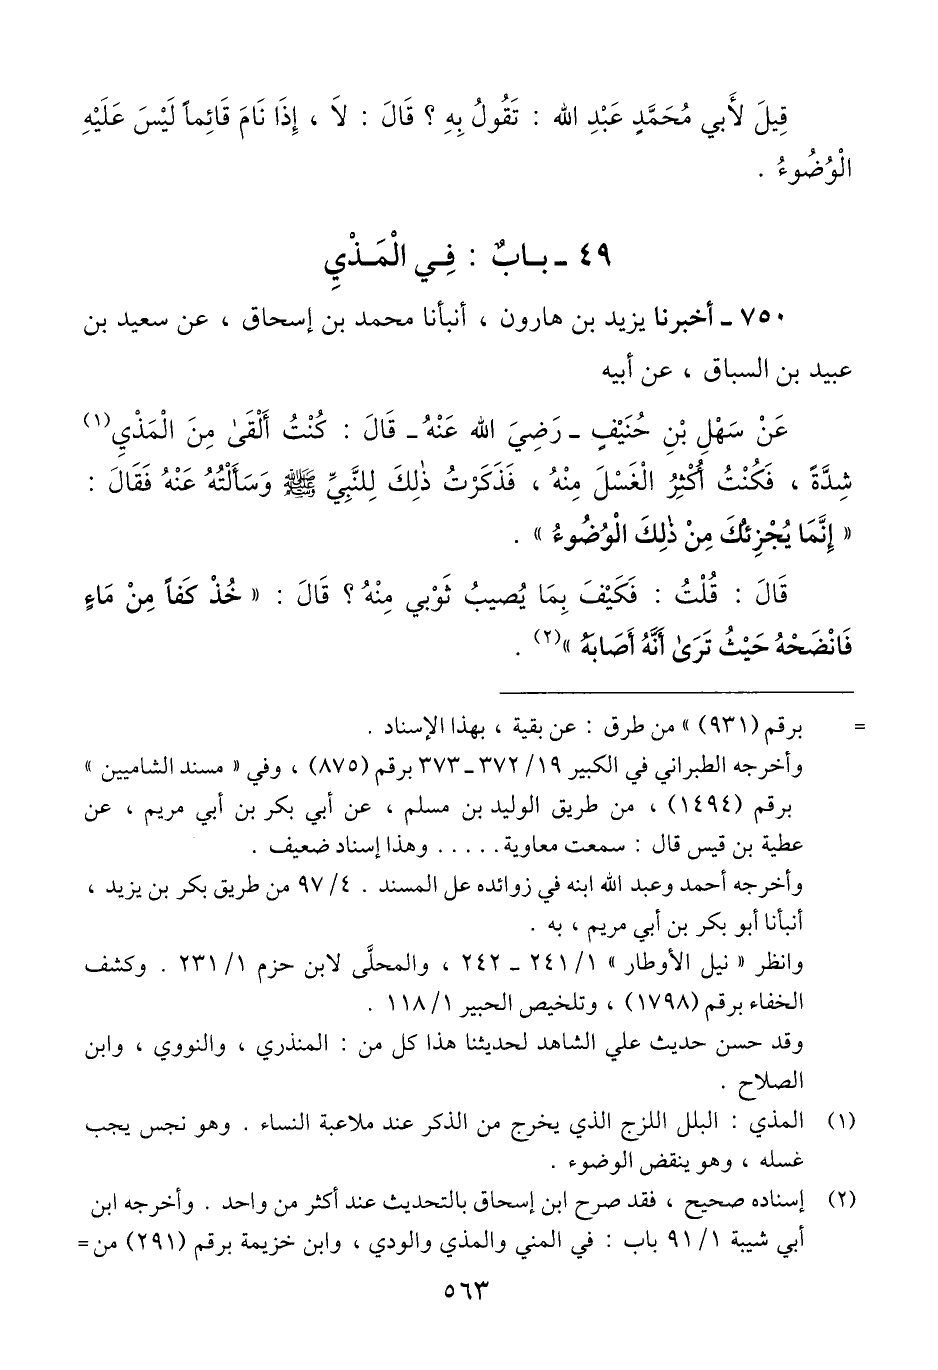 قِيلَ لأَبي مُحَمَّدٍ عَبْدِ الله : تَقُولُ بِهِ ؟ قَالَ : لاَ ، إِذَا نَامَ قَائِماً لَيْسَ عَلَيْهِ
الْوُضُوءُ .
٤٩ ـ بـابٌ : فِـي الْمَـذْيِ
٧٥٠ ـ أخبرنا يزيد بن هارون ، أنبأنا محمد بن إسحاق ، عن سعيد بن
عبيد بن السباق ، عن أبيه
عَنْ سَهْلِ بْنِ حُنَيْفٍ ـ رَضِيَ الله عَنْهُ ـ قَالَ : كُنْتُ أَلْقَىٰ مِنَ الْمَذْيِ(١)
شِدَّةً ، فَكُنْتُ أُكْثِرُ الْغَسْلَ مِنْهُ ، فَذَكَرْتُ ذٰلِكَ لِلنَّبِيِّ ﷺ وَسَأَلْتُهُ عَنْهُ فَقَالَ :
« إِنَّمَا يُجْزِئُكَ مِنْ ذٰلِكَ الْوُضُوءُ » .
قَالَ : قُلْتُ : فَكَيْفَ بِمَا يُصيبُ ثَوْبي مِنْهُ ؟ قَالَ : « خُذْ كَفاً مِنْ مَاءٍ
فَانْضَحْهُ حَيْثُ تَرَىٰ أَنَّهُ أَصَابَهُ »(٢) .
= برقم (٩٣١) » من طرق : عن بقية ، بهذا الإسناد .
وأخرجه الطبراني في الكبير ١٩/ ٣٧٢ ـ ٣٧٣ برقم (٨٧٥) ، وفي « مسند الشاميين »
برقم (١٤٩٤) ، من طريق الوليد بن مسلم ، عن أبي بكر بن أبي مريم ، عن
عطية بن قيس قال : سمعت معاوية ..... وهذا إسناد ضعيف .
وأخرجه أحمد وعبد الله ابنه في زوائده عل المسند . ٤/ ٩٧ من طريق بكر بن يزيد ،
أنبأنا أبو بكر بن أبي مريم ، به .
وانظر « نيل الأوطار » ١/ ٢٤١ ـ ٢٤٢ ، والمحلَّى لابن حزم ١/ ٢٣١ . وكشف
الخفاء برقم (١٧٩٨) ، وتلخيص الحبير ١/ ١١٨ .
وقد حسن حديث علي الشاهد لحديثنا هذا كل من : المنذري ، والنووي ، وابن
الصلاح .
(١) المذي : البلل اللزج الذي يخرج من الذكر عند ملاعبة النساء . وهو نجس يجب
غسله ، وهو ينقض الوضوء .
(٢) إسناده صحيح ، فقد صرح ابن إسحاق بالتحديث عند أكثر من واحد . وأخرجه ابن
أبي شيبة ١/ ٩١ باب : في المني والمذي والودي ، وابن خزيمة برقم (٢٩١) من =
٥٦٣